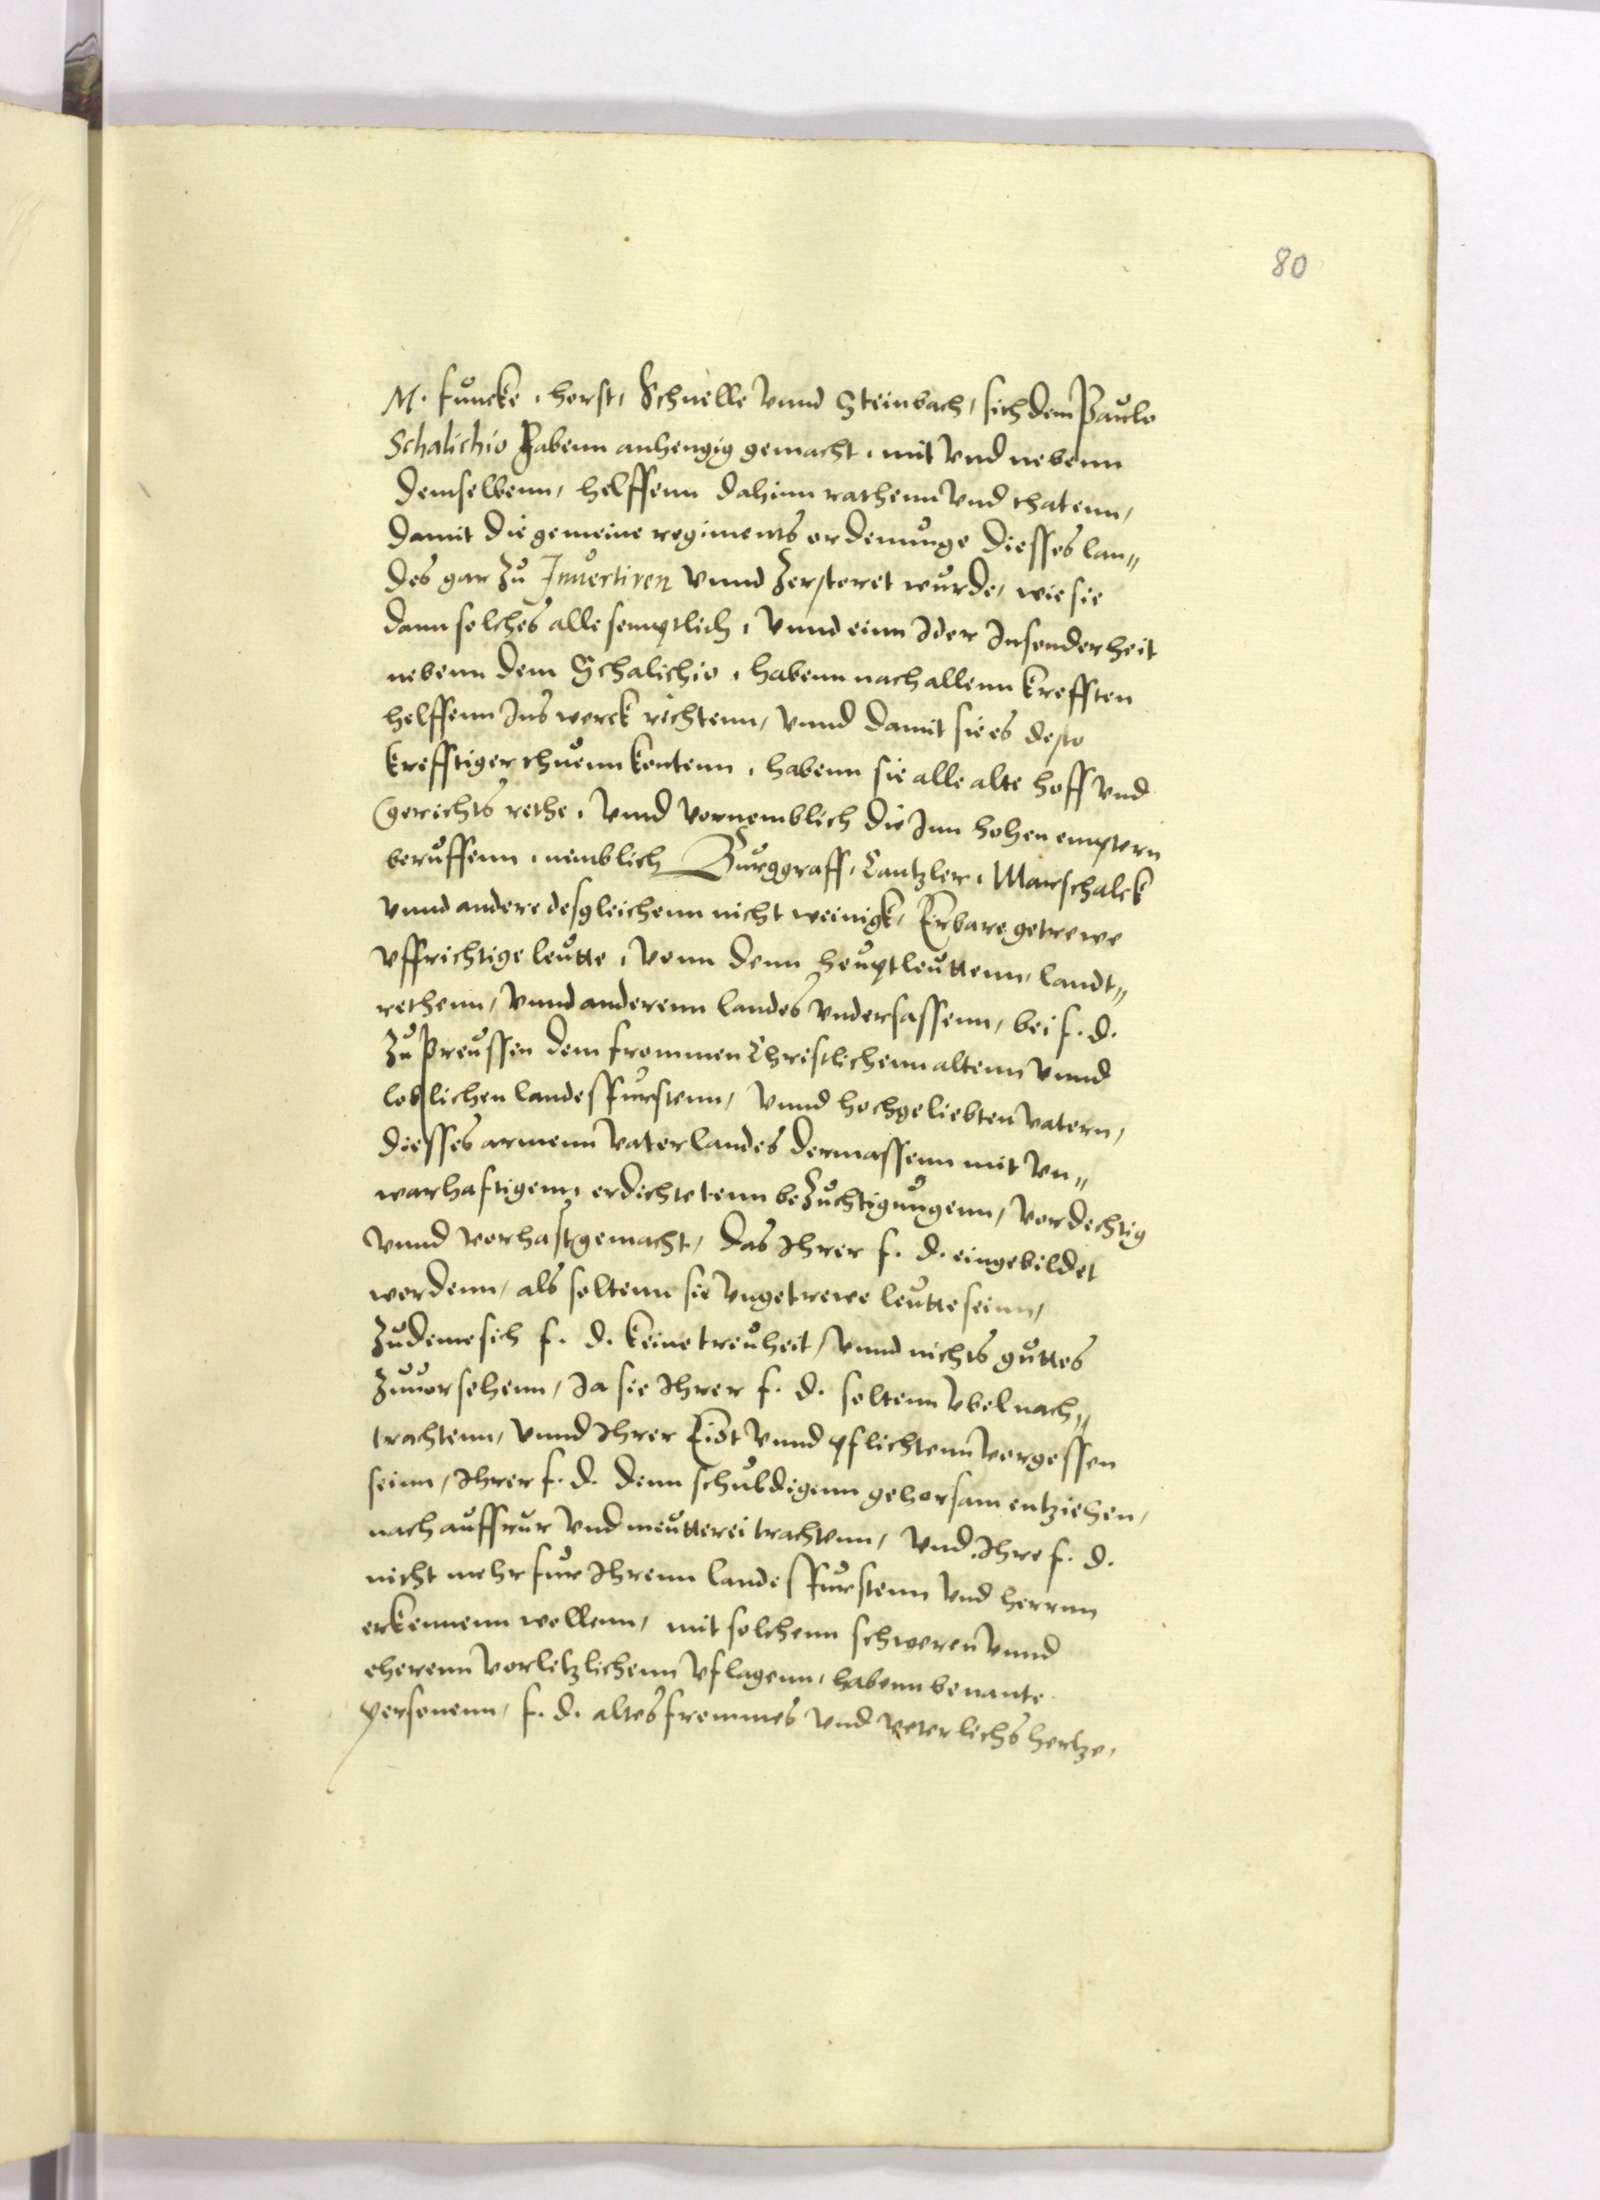 80
M. Funcke, Horst, Schnelle vnnd Steinbach, sich dem Paulo
Schalichio habenn anhengig gemacht, mit vnd nebenn
demselbenn, helffenn dahinn rathenn vnd thatenn,
damit die gemeine regiments ordenunge diesses lan„
des gar zu Inuertiren vnnd zerstoret wurde, wie sie
dann solches alle semptlich, vnnd einn Jder Jnsonderheit
nebenn dem Schalichio, habenn nach allenn krefften
helffenn Jns werck richtenn, vnnd damit sie es desto
krefftiger thuenn kontenn, habenn sie alle alte hoff vnd
gerichts rethe, vnnd vornemblich die Jnn hohen emptern
beruffenn, nemblich Burggraff, Cantzler, Marschalck
vnnd andere desgleichenn nicht weinigk, Erbare getrewe
vffrichtige leutte, vonn denn heuptleuttenn, landt„
rethenn, vnnd anderenn landes vndersassenn, bei f. d.
zu Preussen dem frommen Christlichenn altenn vnnd
loblichen landesfurstenn, vnnd hochgeliebten vatern,
diesses armenn vaterlandes dermassenn mit vn„
warhafftigenn, erdichtetenn bezuchtigungenn, vordechtig
vnnd vorhast gemacht, das Ihrer f. d. eingebildet
wordenn, als soltenn sie vngetrewe leutte seinn,
zu deme sich f. d. keine treuheit, vnnd nichts guttes
zuuorsehenn, Ja sie Ihrer f. d. soltenn vbel nach„
trachtenn, vnnd Ihrer Eidt vnnd pflichtenn vorgessen
seinn, Ihrer f. d. denn schuldigenn gehorsam entziehen,
nach auffrur vnd meutterei trachtenn, vnd Ihre f. d.
nicht mehr fur Ihrenn landesfurstenn vnd herrnn
erkennenn wollenn, mit solchenn schweren vnnd
eherenn vorletzlichenn vflagenn, habenn benante
personenn, f. d. altes frommes vnd veterlichs hertze,